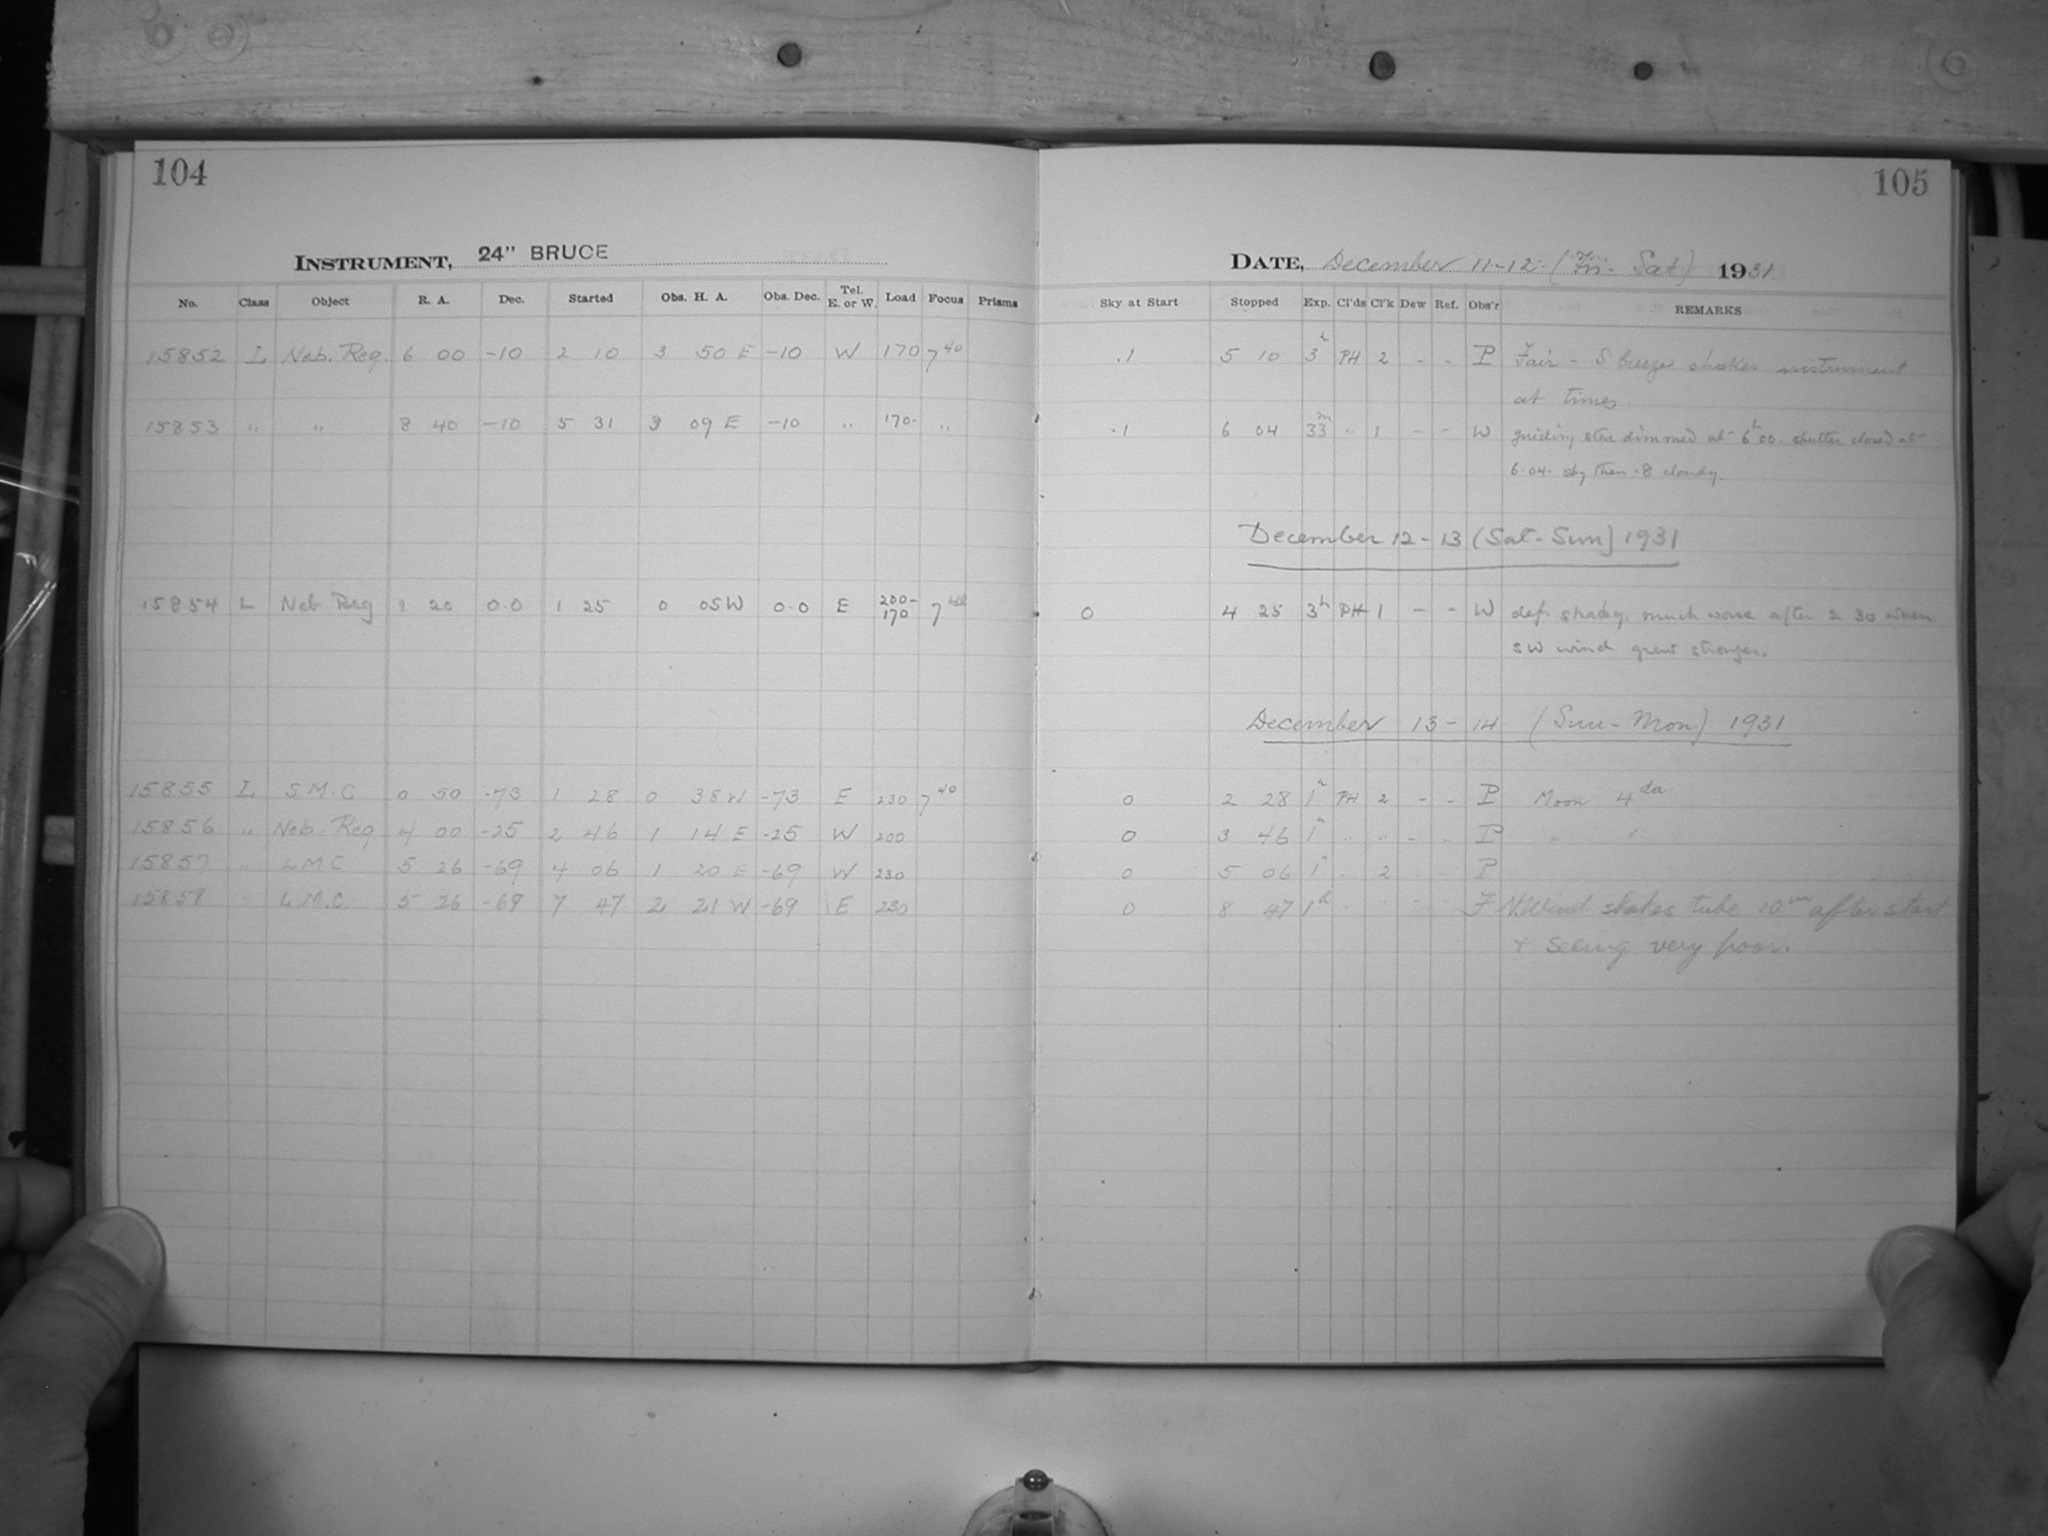 104
105
INSTRUMENT, 24" BRUCE
DATE, December 11-12 (Fri - Sat) 1931
No. Class Object R. A. Dec. Started Obs. H. A. Obs. Dec. Tel. E. or W. Load Focus Prisms Sky at Start Stopped Exp. Cl'ds Cl'k Dew Ref. Obs'r REMARKS
15852 L Neb. Reg. 6 00 -10 2 10 3 50 E -10 W 170 7 40 .1 5 10 3h PH 2 - - P Fair - S breeze shakes instrument
at times.
15853 " " 8 40 -10 5 31 3 09 E -10 " 170- " .1 6 04 33m " 1 - - W guiding star dimmed at 6h00. shutter closed at
6.04. sky then .8 cloudy.
December 12-13 (Sat-Sun) 1931
15854 L Neb Reg 1 20 0.0 1 25 0 05 W 0.0 E 200-170 7 40 0 4 25 3h PH 1 - - W def. shaky. much worse after 2 30 when
SW wind grew stronger.
December 13-14 (Sun-Mon) 1931
15855 L S.M.C 0 50 -73 1 28 0 38 W -73 E 230 7 40 0 2 28 1h PH 2 - - P Moon 4da
15856 " Neb. Reg 4 00 -25 2 46 1 14 E -25 W 200 0 3 46 1h " " - - P " "
15857 " LMC 5 26 -69 4 06 1 20 E -69 W 230 0 5 06 1h " 2 - - P
15858 " L.M.C. 5 26 -69 7 47 2 21 W -69 E 230 0 8 47 1h " " " " F N. Wind shakes tube 10m after start
+ seeing very poor.